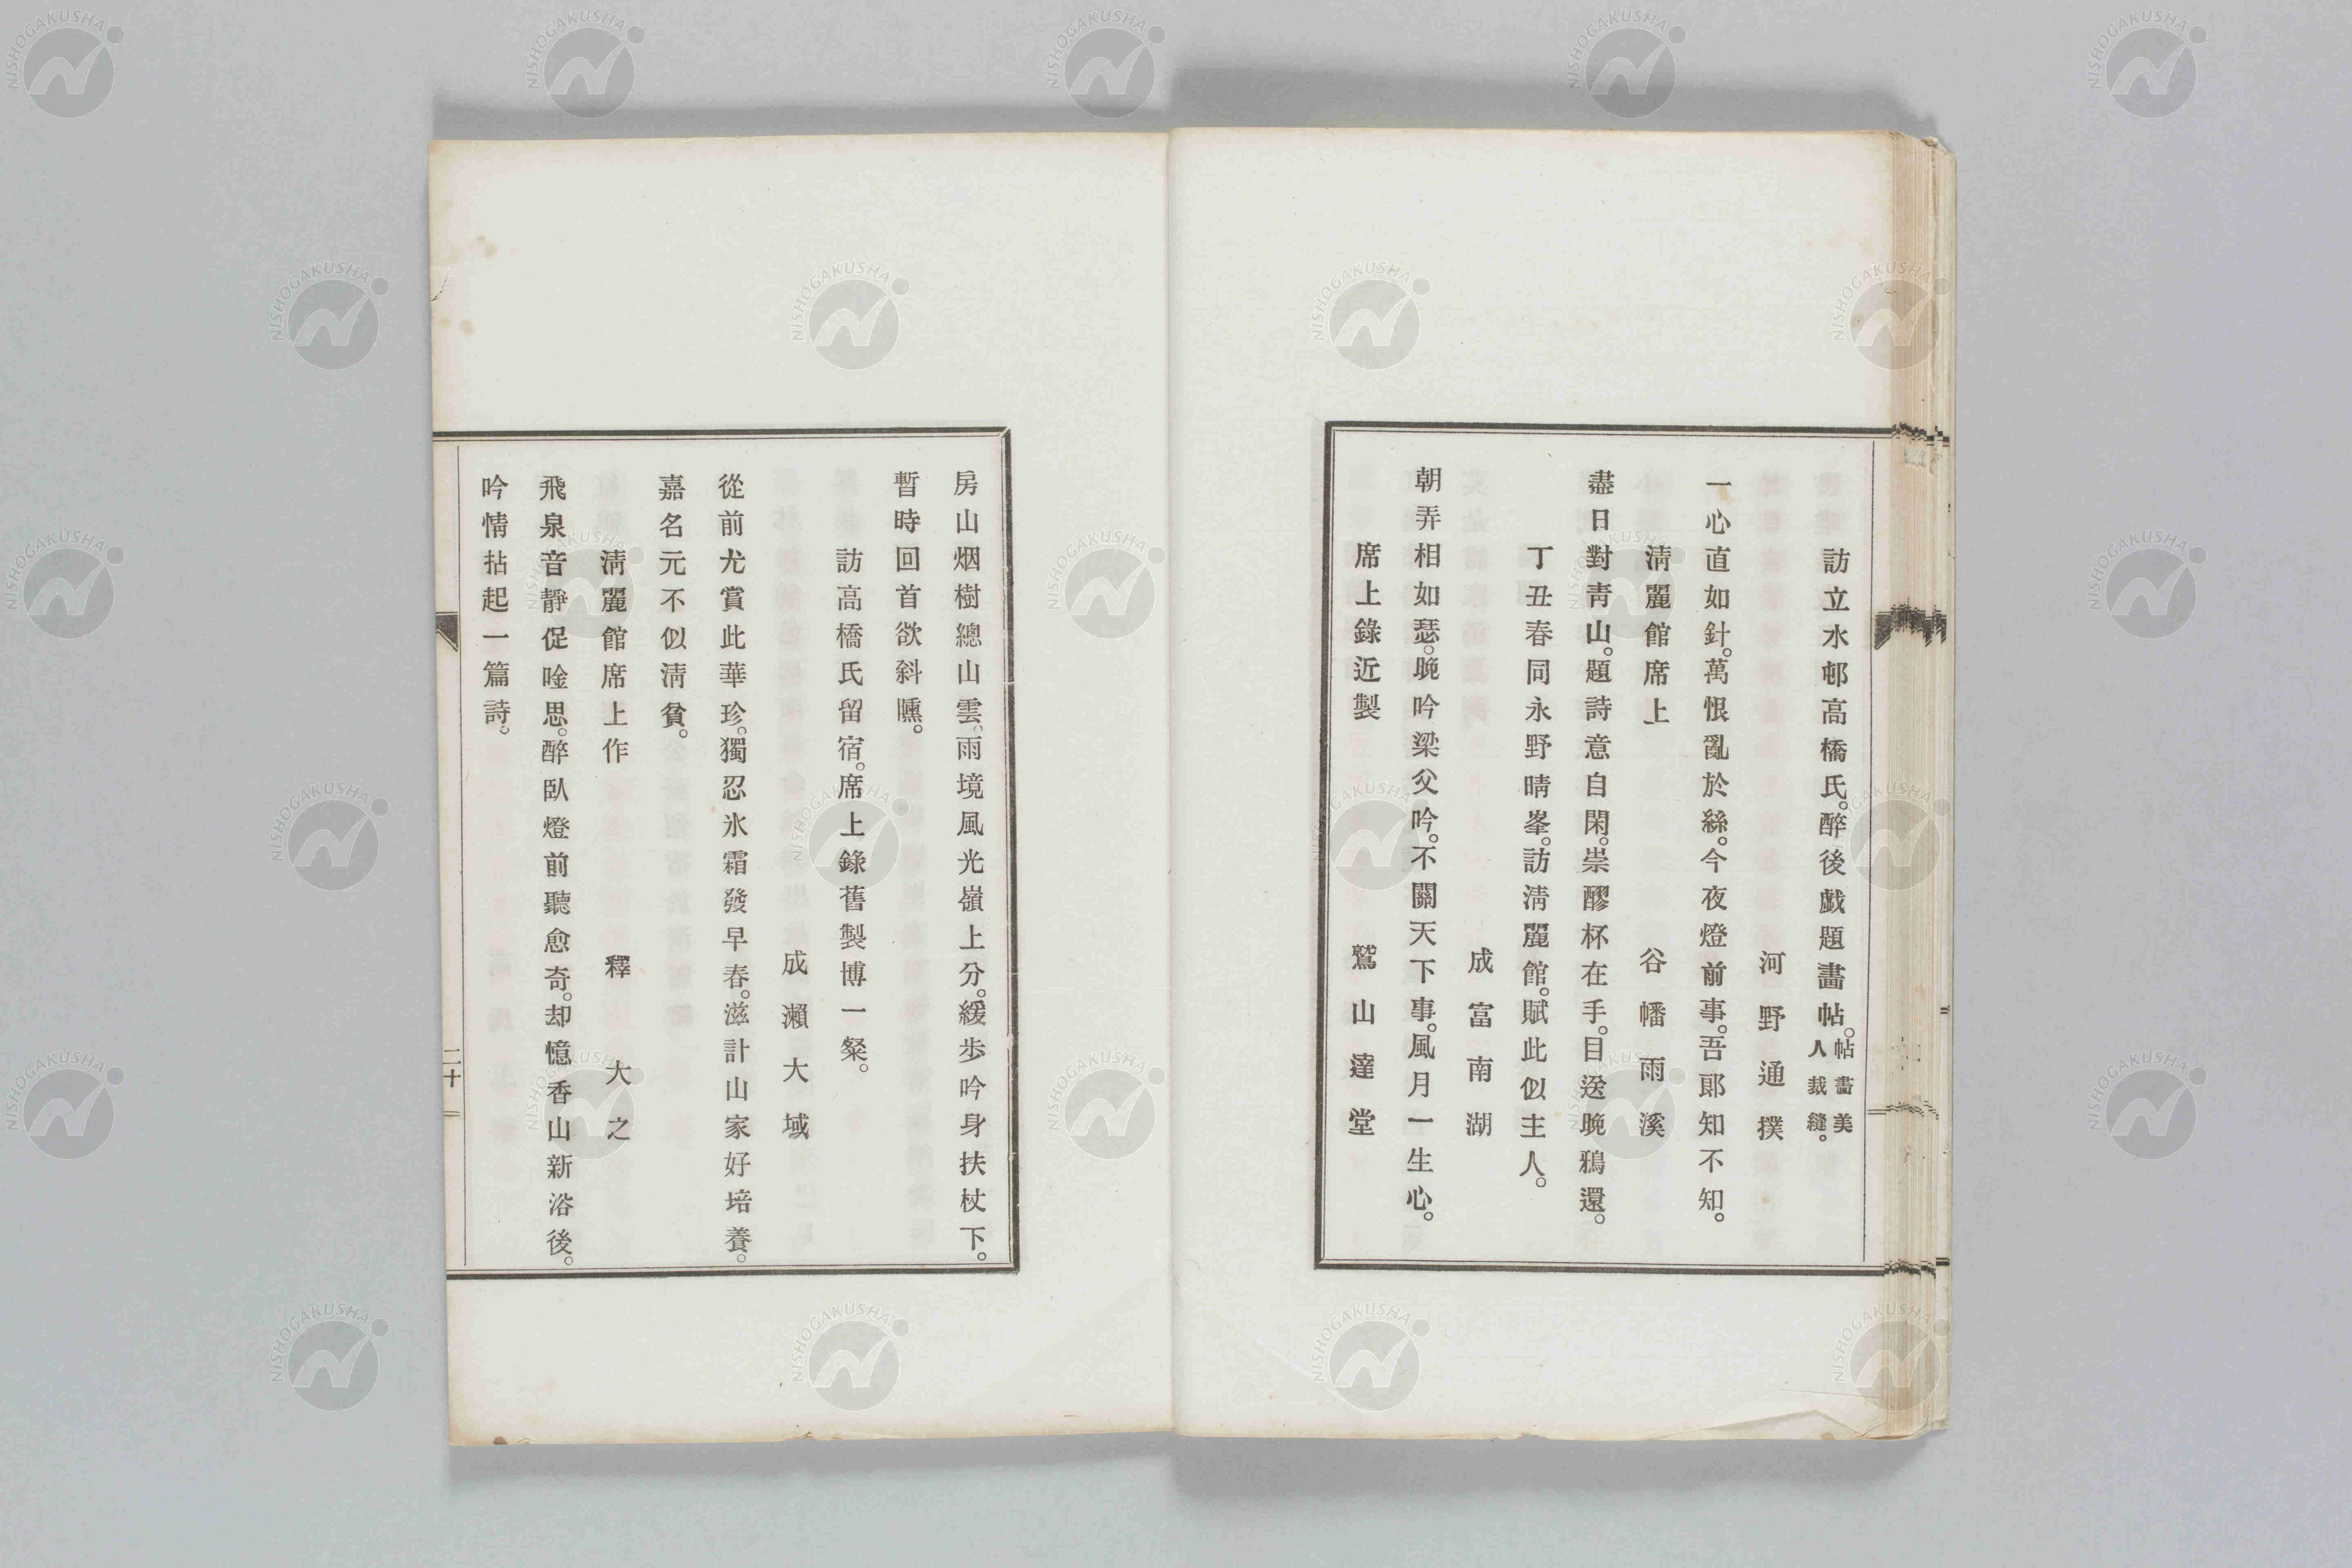 訪立水邨高橋氏。醉後戯題畫帖。帖畵美人裁縫。
河野通撲
一心直如針。萬恨亂於絲。今夜燈前事。吾郞知不知。
淸麗館席上
谷幡雨溪
盡日對靑山。題詩意自閑。崇醪杯在手。目送晩鴉還。
丁丑春同永野晴峯。訪淸麗館。賦此似主人。
成富南湖
朝弄相如瑟。晩吟梁父吟。不關天下事。風月一生心。
席上錄近製
鷲山達堂
房山烟樹總山雲。雨境風光嶺上分。緩歩吟身扶杖下。
暫時回首欲斜曛。
訪高橋氏留宿。席上錄舊製博一粲。
成瀨大域
從前尤賞此華珍。獨忍氷霜發早春。滋計山家好培養。
嘉名元不似淸貧。
淸麗館席上作
釋大之
飛泉音靜促唫思。醉臥燈前聽愈奇。却憶香山新浴後。
吟情拈起一篇詩。
二十
NISHOGAKUSHA